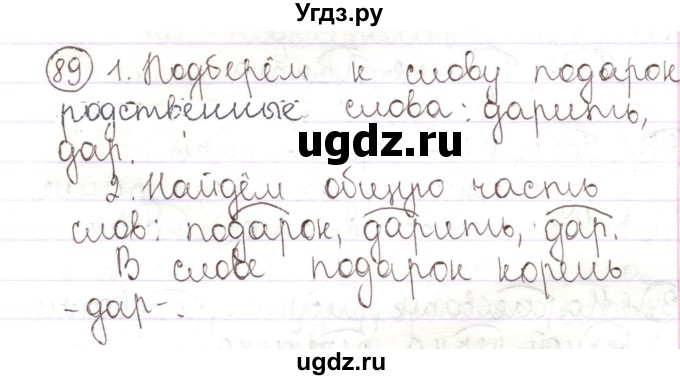 Угдз.ру
89 1. Подберём к слову подарок
родственные слова: дарить,
дар.
ugdz.ru
2. Найдём общую часть
слов: подарок, дарить, дар.
В слове подарок корень
-дар-.
ugdz.ru